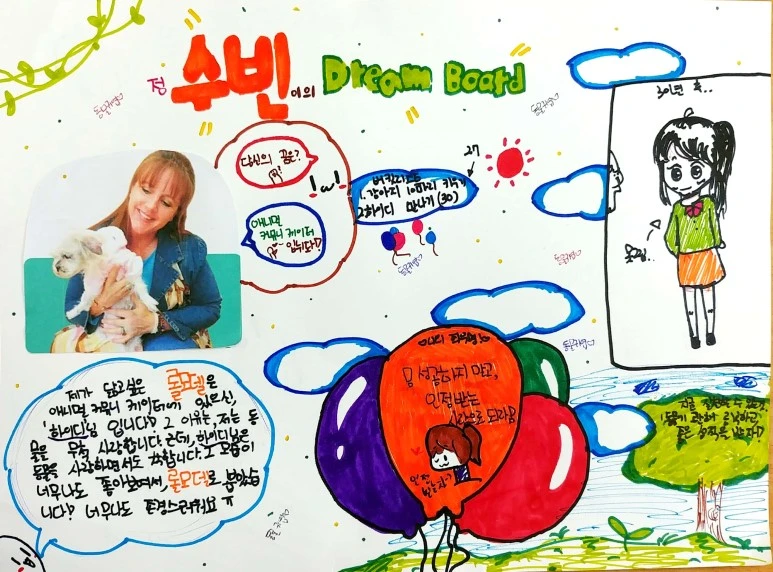 정 수빈이의 Dream Board
동물귀엽♡
동물귀엽♡
당신의 꿈은?
애니멀
커뮤니케이터
입니다
버킷리스트
1. 강아지 10마리 키우기
2. 하이디 만나기 (30)
27
동물귀엽♡
동물귀엽♡
30년 후..
나의 좌우명
성공하지 말고,
인정받는
사람으로 도라옴
인정
받는자
동물귀엽♡
제가 닮고싶은 롤모델은
애니멀 커뮤니케이터에 있으신,
'하이디'님 입니다 그 이유는, 저는 동
물을 무척 사랑합니다. 근데, 하이디님은
동물을 사랑하면서도 그 모습이
너무나도 좋아보여서, 롤모델로 뽑았습
니다? 너무나도 존경스러워요 ㅠ
동물귀엽♡